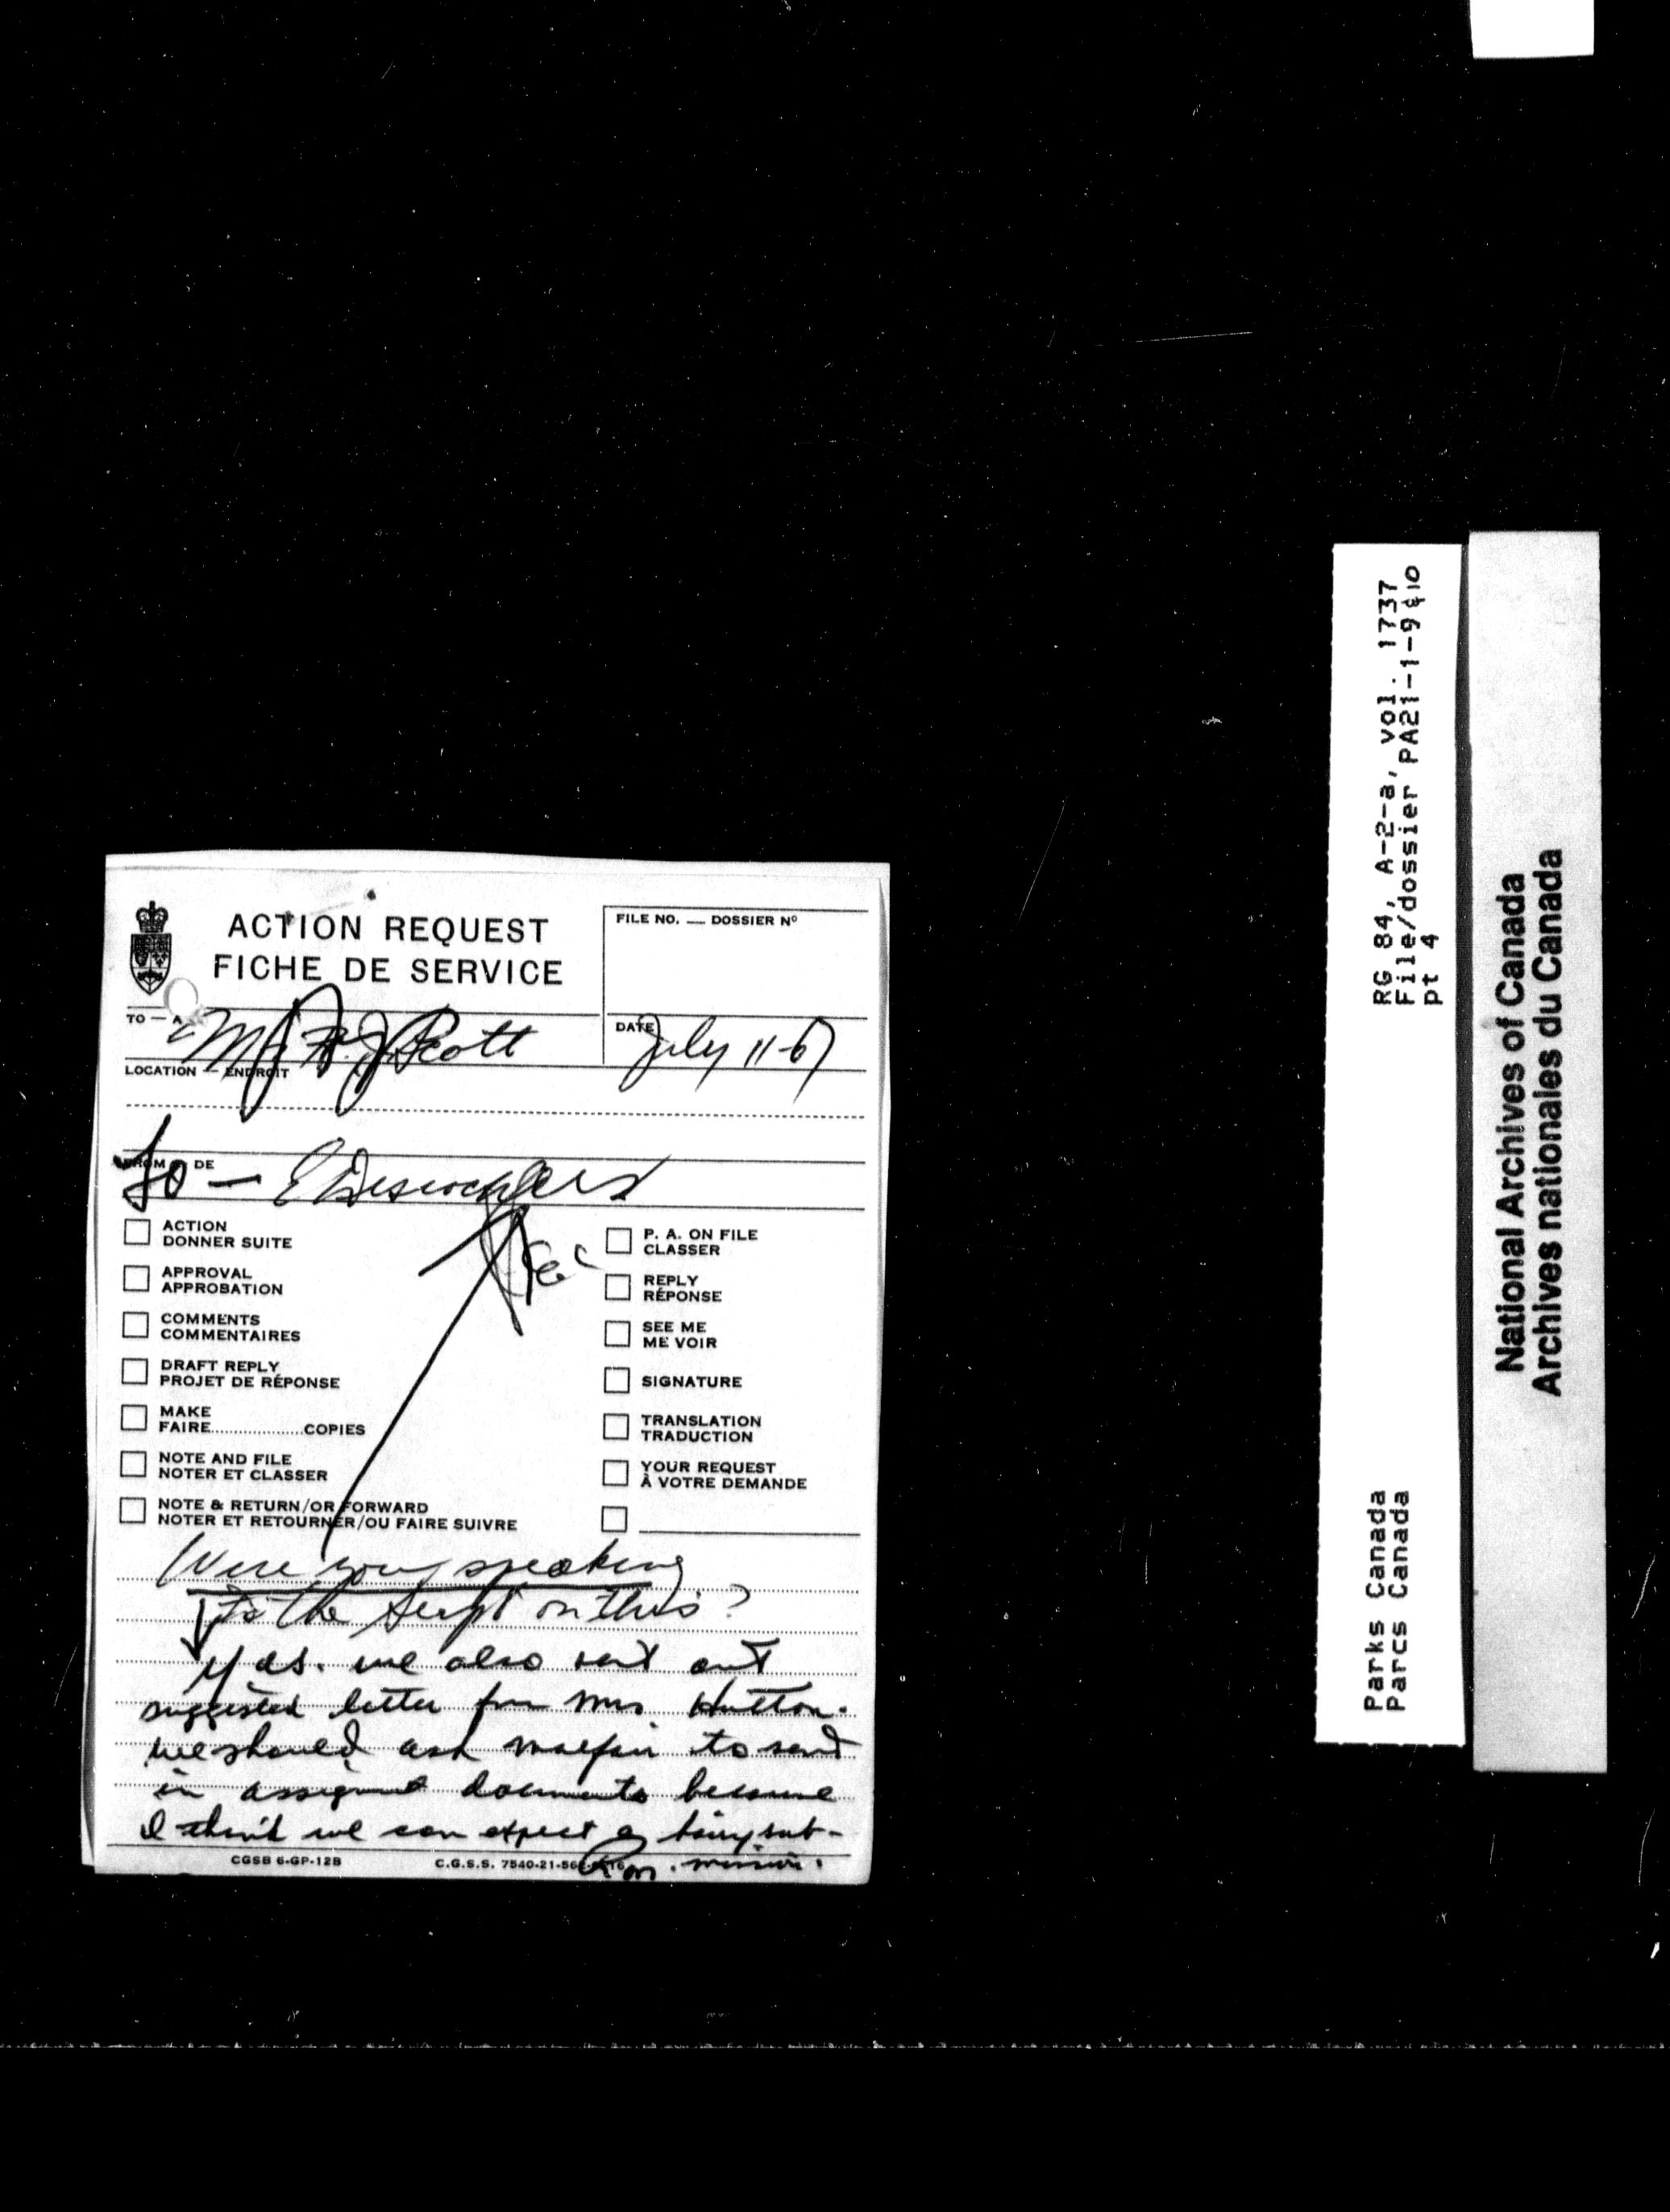 ACTION REQUEST
FICHE DE SERVICE
FILE NO. — DOSSIER Nº
TO — A
Mr. F. J. Scott
DATE
July 11-67
LOCATION — ENDROIT
FROM — DE
To — E Desrochers
ACTION
DONNER SUITE
APPROVAL
APPROBATION
COMMENTS
COMMENTAIRES
DRAFT REPLY
PROJET DE RÉPONSE
MAKE
FAIRE..................COPIES
NOTE AND FILE
NOTER ET CLASSER
NOTE & RETURN/OR FORWARD
NOTER ET RETOURNER/OU FAIRE SUIVRE
P. A. ON FILE
CLASSER
REPLY
RÉPONSE
SEE ME
ME VOIR
SIGNATURE
TRANSLATION
TRADUCTION
YOUR REQUEST
À VOTRE DEMANDE
Were you speaking
to the Supt on this?
Yes. we also sent out
suggested letter for Mrs Hutton.
we should ask to send
in documents because
I think we can expect a sub-
mission.
CGSB 6-GP-12B
C.G.S.S. 7540-21-
RG 84, A-2-a, vol. 1737
File/dossier PA21-1-9&10
pt 4
Parks Canada
Parcs Canada
National Archives of Canada
Archives nationales du Canada